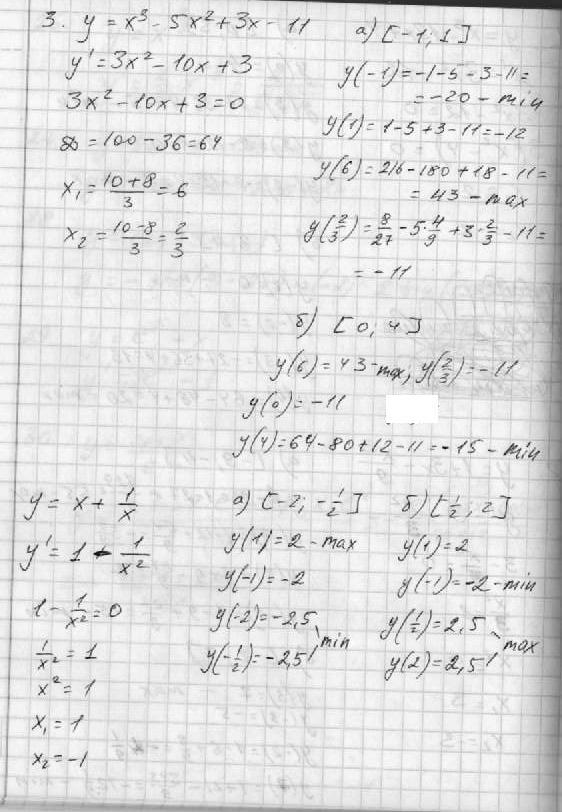 3. y = x³ - 5x² + 3x - 11
y' = 3x² - 10x + 3
3x² - 10x + 3 = 0
D = 100 - 36 = 64
x₁ = (10+8)/3 = 6
x₂ = (10-8)/3 = 2/3
а) [-1; 1]
y(-1) = -1 - 5 - 3 - 11 =
= -20 - min
y(1) = 1 - 5 + 3 - 11 = -12
y(6) = 216 - 180 + 18 - 11 =
= 43 - max
y(2/3) = 8/27 - 5·4/9 + 3·2/3 - 11 =
= -11
б) [0, 4]
y(6) = 43 - max, y(2/3) = -11
y(0) = -11
y(4) = 64 - 80 + 12 - 11 = -15 - min
y = x + 1/x
y' = 1 - 1/x²
1 - 1/x² = 0
1/x² = 1
x² = 1
x₁ = 1
x₂ = -1
а) [-2; -1/2]
y(1) = 2 - max
y(-1) = -2
y(-2) = -2,5
y(-1/2) = -2,5
min
б) [1/2, 2]
y(1) = 2
y(-1) = -2 - min
y(1/2) = 2,5
y(2) = 2,5
max